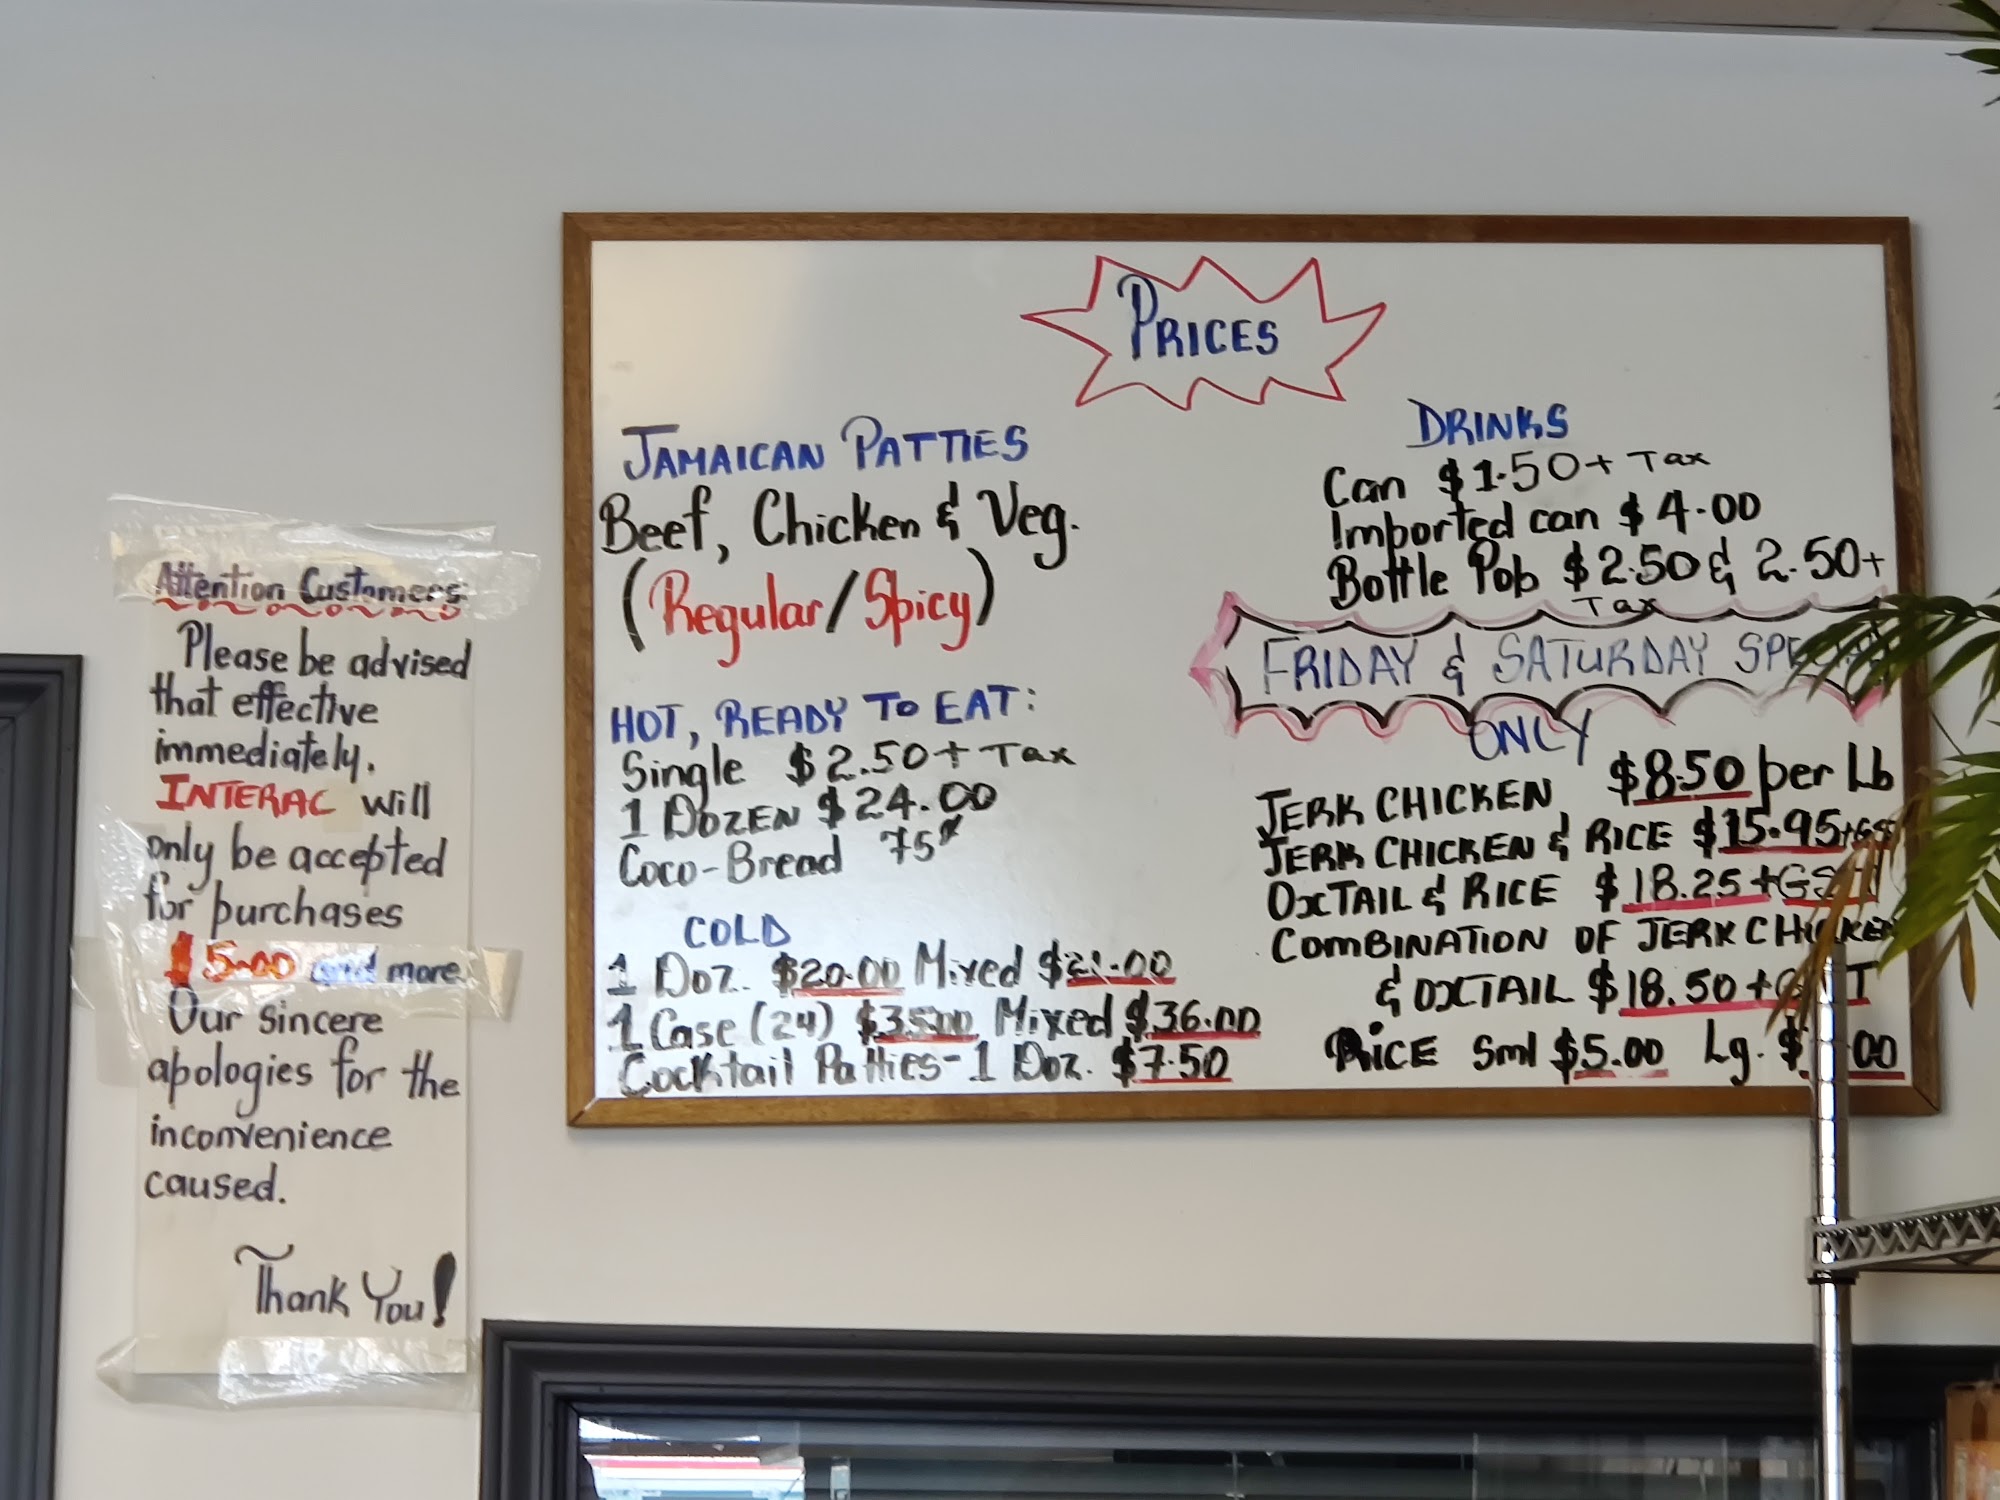 Attention Customers:
Please be advised
that effective
immediately.
INTERAC will
only be accepted
for purchases
$5.00 and more.
Our sincere
apologies for the
inconvenience
caused.
Thank You!
PRICES
JAMAICAN PATTIES
Beef, Chicken & Veg.
(Regular/Spicy)
HOT, READY TO EAT:
Single $2.50+ Tax
1 DOZEN $24.00
Coco-Bread 75¢
COLD
1 Doz. $20.00 Mixed $21.00
1 Case (24) $35.00 Mixed $36.00
Cocktail Patties-1 Doz. $7.50
DRINKS
Can $1.50+ Tax
Imported can $4.00
Bottle Pop $2.50 & 2.50+
Tax
FRIDAY & SATURDAY
ONLY
JERK CHICKEN $8.50 per Lb
JERK CHICKEN & RICE $15.95
OXTAIL & RICE $18.25+
COMBINATION OF JERK CHICKEN
& OXTAIL $18.50+
RICE Sml $5.00 Lg.